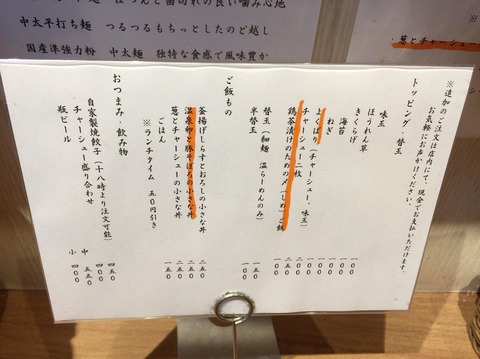 と歯切れの良い噛み心地
中太平打ち麺 つるつるもちっとしたのど越し
国産準強力粉 中太麺 独特な食感で風味豊か
葱とチャーシュー
※追加のご注文は店内にて、現金でお支払いただけます。
お気軽にお声かけください。
トッピング・替玉
味玉 一〇〇
ほうれん草 一〇〇
きくらげ 一〇〇
海苔 一〇〇
ねぎ 一〇〇
上くばり（チャーシュー、味玉） 二五〇
チャーシュー二枚 二五〇
鶏茶漬けのための〆（しめ）ご飯 一〇〇
替玉（和麺 温らーめんのみ） 一五〇
半替玉 一〇〇
ご飯もの
釜揚げしらすとおろしの小さな丼 二五〇
温泉卵と豚そぼろの小さな丼 二五〇
葱とチャーシューの小さな丼 二五〇
ごはん 一五〇
※ランチタイム 五〇円引き
おつまみ・飲み物
自家製焼餃子（十八時より注文可能） 四五〇
チャーシュー盛り合わせ
瓶ビール 中
小